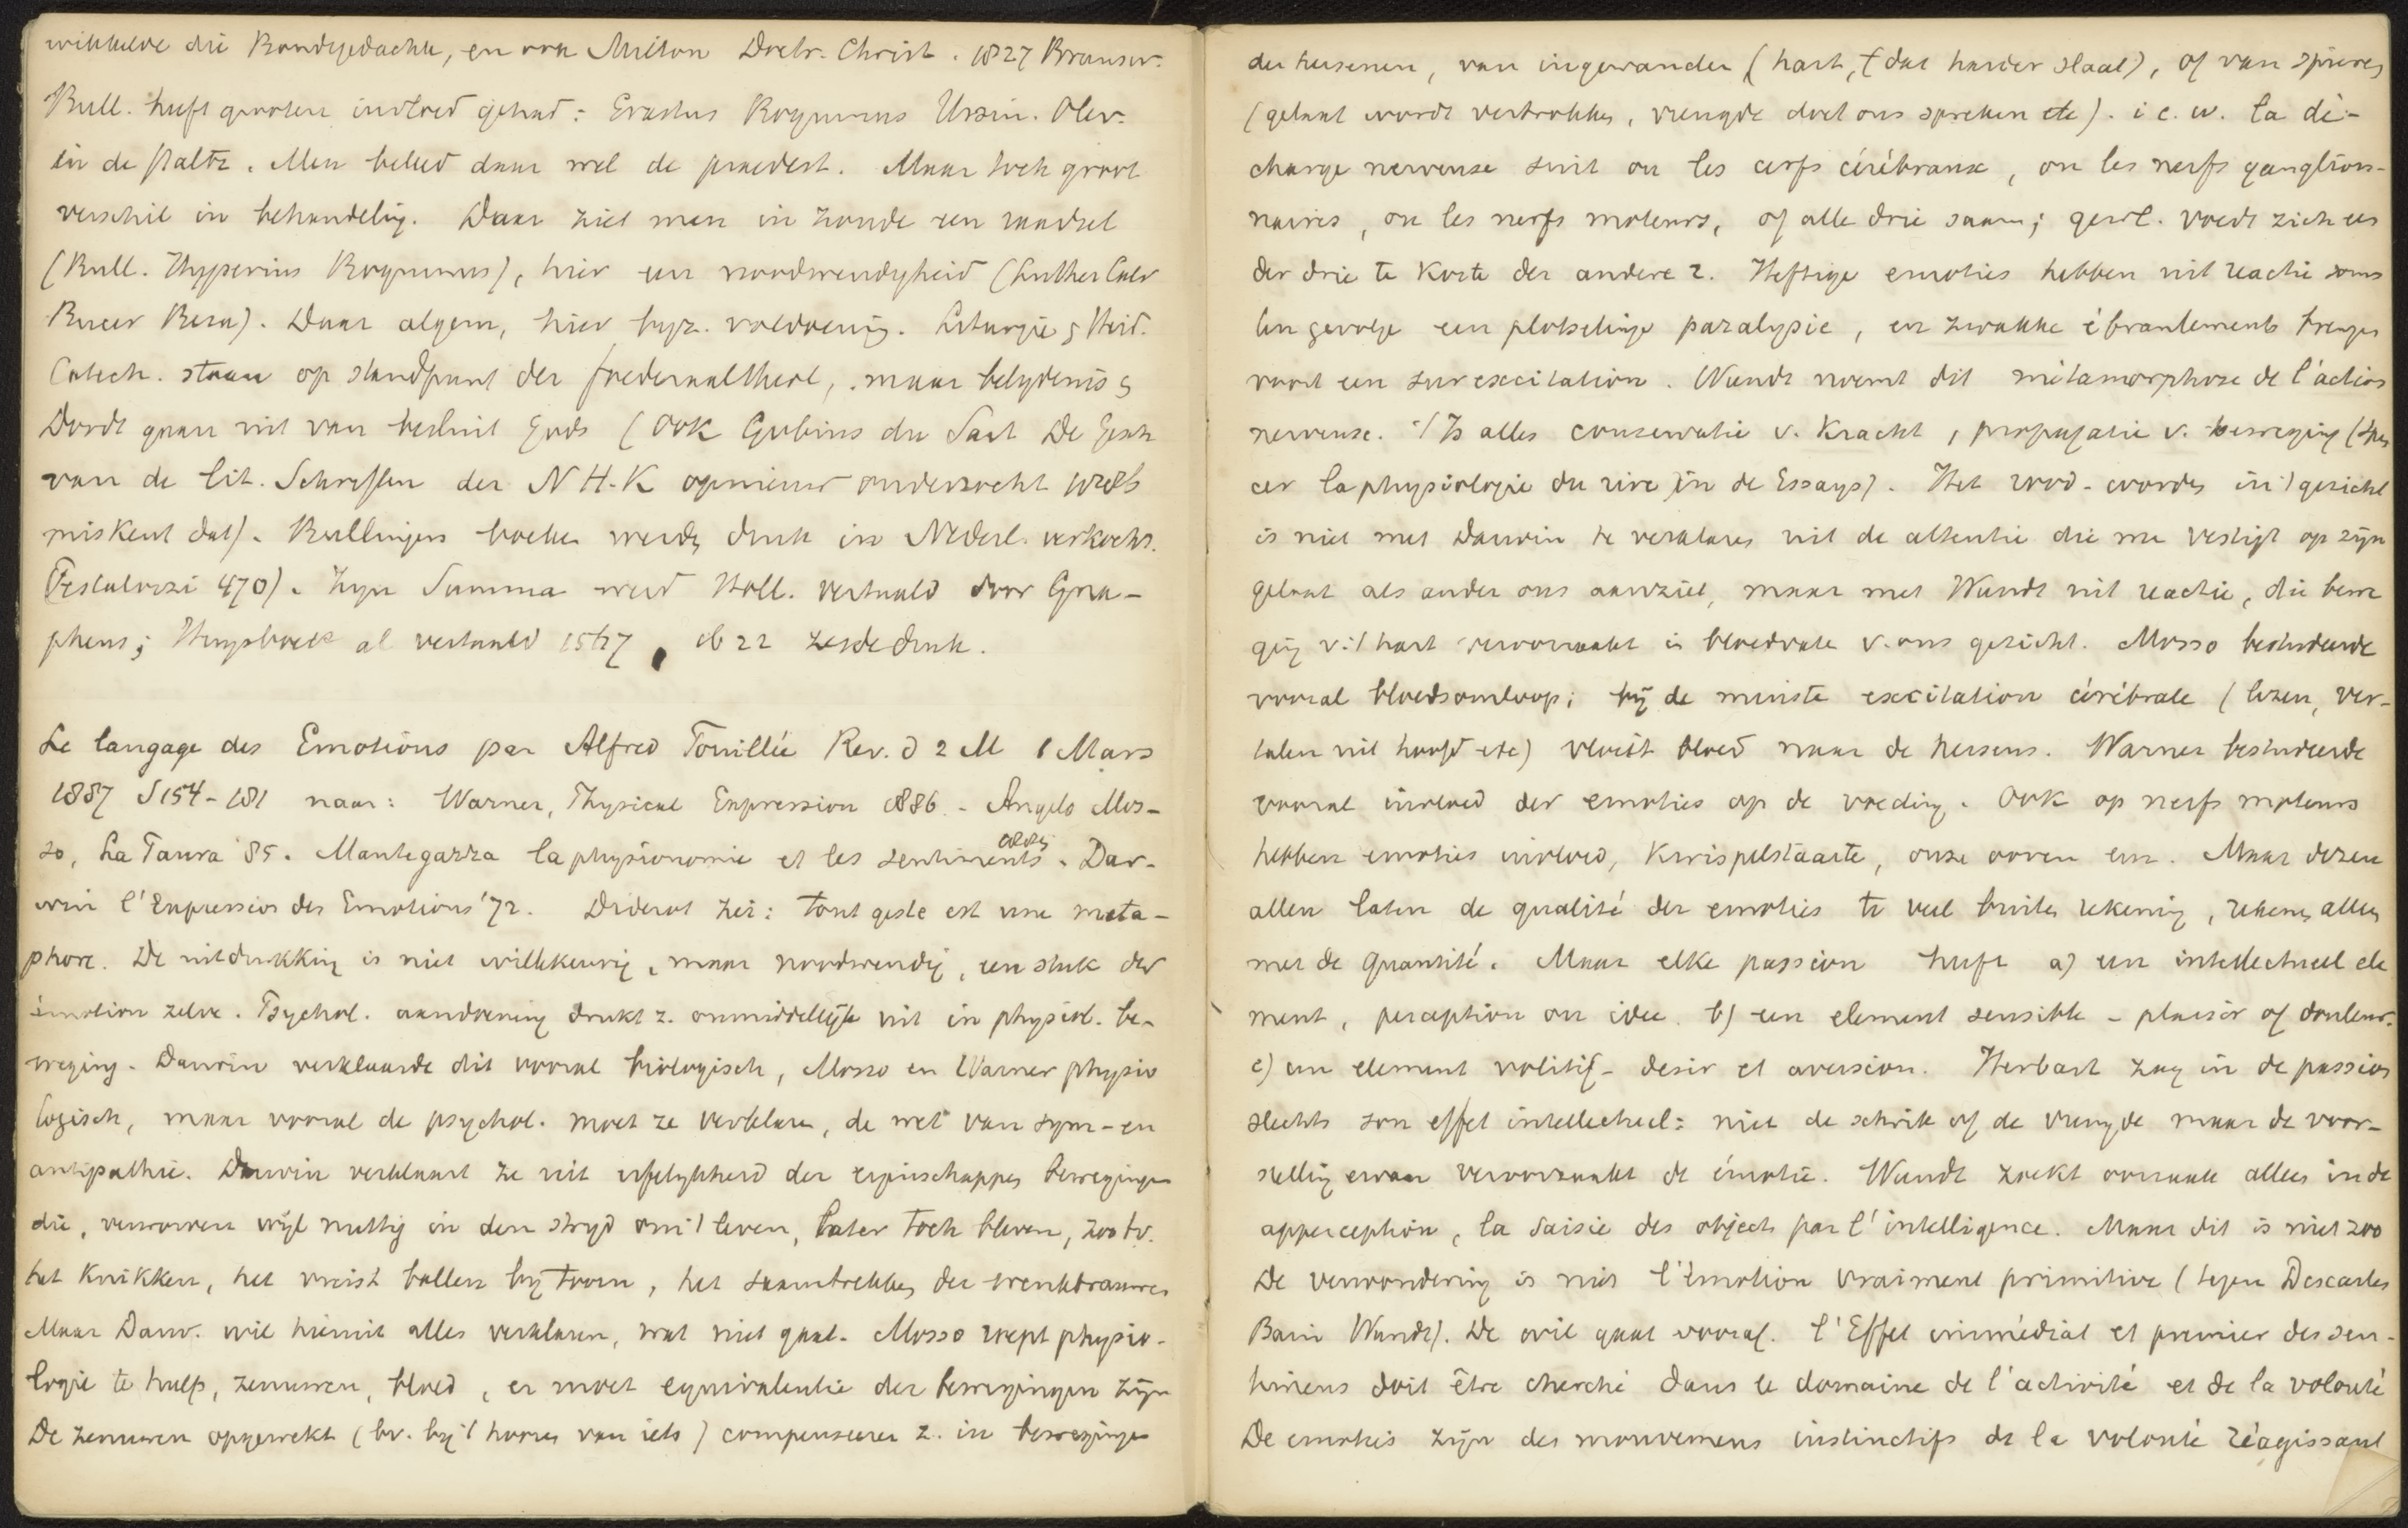 wikkelde die Bondsgedachte, en ook Milton Doctr. Christ. 1827 Brunsw.
Bull. heeft grooten invloed gehad: Erastus Boquinus Ursin. Olev.
in de Paltz. Men beleed daar wel de praedest. Maar toch groot
verschil in behandeling. Daar ziet men in zonde een raadsel
(Bull. Hyperius Boquinus), hier een noodwendigheid (Luther Calv
Bucer Beza). Daar algem, hier byz. voldoening. Liturgie & Heid.
Catech. staan op standpunt der foederaaltheol, maar belydenis &
Dordt gaan uit van besluit Gods (Ook Gobius du Sart De Gesch
van de lit. Schriften der N H. K opnieuw onderzocht
miskent dat). Bullingers boeken werden druk in Nederl. verkocht.
(Pestalozzi 470). Zyn Summa werd Holl. vertaald door Gna-
pheus; Huysboek al vertaald 1567, 1622 zesde druk.
Le langage des Emotions par Alfred Fouillée Rev. d 2 M 1 Mars
1887 S 154-181 naar: Warner, Physical Expression 1886. - Angelo Mos-
so, La Paura '85. Mantegazza la physionomie et les sentiments 1885. Dar-
win l'Expression des Emotions '72. Diderot zei: tout geste est une meta-
phore. De uitdrukking is niet willekeurig, maar noodwendig, een stuk der
émotion zelve. Psychol. aandoening drukt z. onmiddellijk uit in physiol. be-
weging. Darwin verklaarde dit vooral biologisch, Mosso en Warner physio
logisch, maar vooral de psychol. moet ze verklaren, de wet van sym- en
antipathie. Darwin verklaart ze uit erfelykheid der eigenschappen bewegingen
die, verworven wijl nuttig in den stryd om 't leven, later toch bleven, zoo bv.
het knikken, het vuist ballen by toorn, het saamtrekken der wenkbrauwen
Maar Darw. wil hieruit alles verklaren, wat niet gaat. Mosso roept physio-
logie te hulp, zenuwen, bloed, er moet equivalentie der bewegingen zijn
De zenuwen opgewekt (bv. bij 't hooren van iets) compenseeren z. in bewegingen
der hersenen, van ingewanden (hart, dat harder slaat), of van spieren
(gelaat wordt vertrokken, vreugde doet ons spreken etc). i e. w. la dé-
charge nerveuse suit ou les cerfs cérébraux, ou les nerfs ganglion-
naires, ou les nerfs moteurs, of alle drie saam; gewl. voedt zich een
der drie te koste der andere 2. Heftige emoties hebben uit reactie soms
ten gevolge een plotselinge paralysie, en zwakke ébranlements brengen
voort een surexcitation. Wundt noemt dit métamorphose de l'action
nerveuse. 't Is alles conservatie v. kracht, propagatie v. beweging (Spen
cer la physiologie du rire in de Essays). Het rood-worden in 't gezicht
is niet met Darwin te verklaren uit de attentie die me vestigt op zijn
gelaat als ander ons aanziet, maar met Wundt uit reactie, die bewe
ging v. 't hart veroorzaakt in bloedvate v. ons gezicht. Mosso bestudeerde
vooral bloedsomloop; bij de minste excitation cérébrale (lezen, ver-
talen uit hoofd etc) vloeit bloed naar de hersens. Warner bestudeerde
vooral invloed der emoties op de voeding. Ook op nerfs moteurs
hebben emoties invloed, kwispelstaarte, onze ooren enz. Maar dezen
allen laten de qualité der emoties te veel buiten rekening, rekenen alleen
met de quantité. Maar elke passion heeft a) een intellectueel ele
ment, perception ou idee. b) een element sensible - plaisir of douleur.
c) een element volitif - desir et aversion. Herbart zag in de passion
slechts son effet intellectuel: niet de schrik of de vreugde maar de voor-
stelling ervan veroorzaakt de émotie. Wundt zoekt oorzaak alleen in de
apperception, la saisie des objects par l'intelligence. Maar dit is niet zoo
De verwondering is niet l'émotion vraiment primitive (tegen Descartes
Bain Wundt). De wil gaat vooraf. l'Effet immédiat et premier des sen-
timens doit être cherché dans le domaine de l'activité et de la volonté
De emoties zijn des mouvemens instinctifs de la volonté réagissant